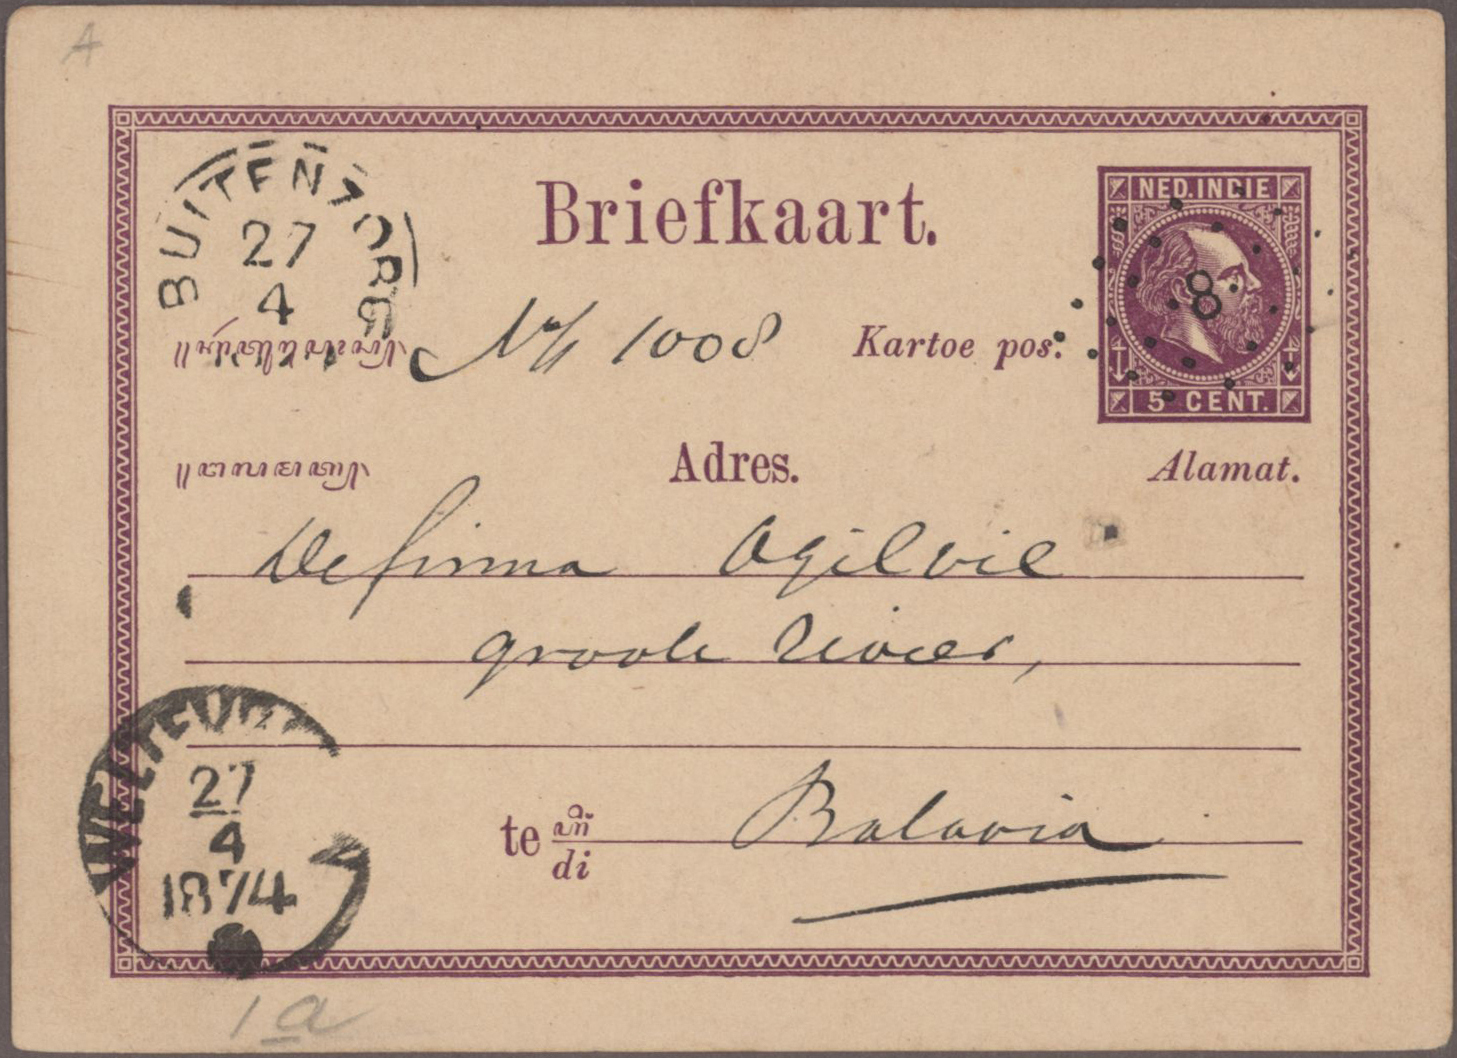 A
NED. INDIE
BUITENZORG
27
4
Briefkaart.
8
No 1008
Kartoe pos.
5 CENT.
Adres.
Alamat.
De firma Ogilvie
groote rivier,
te di
Batavia
WELTEVR
27
4
1874
1a